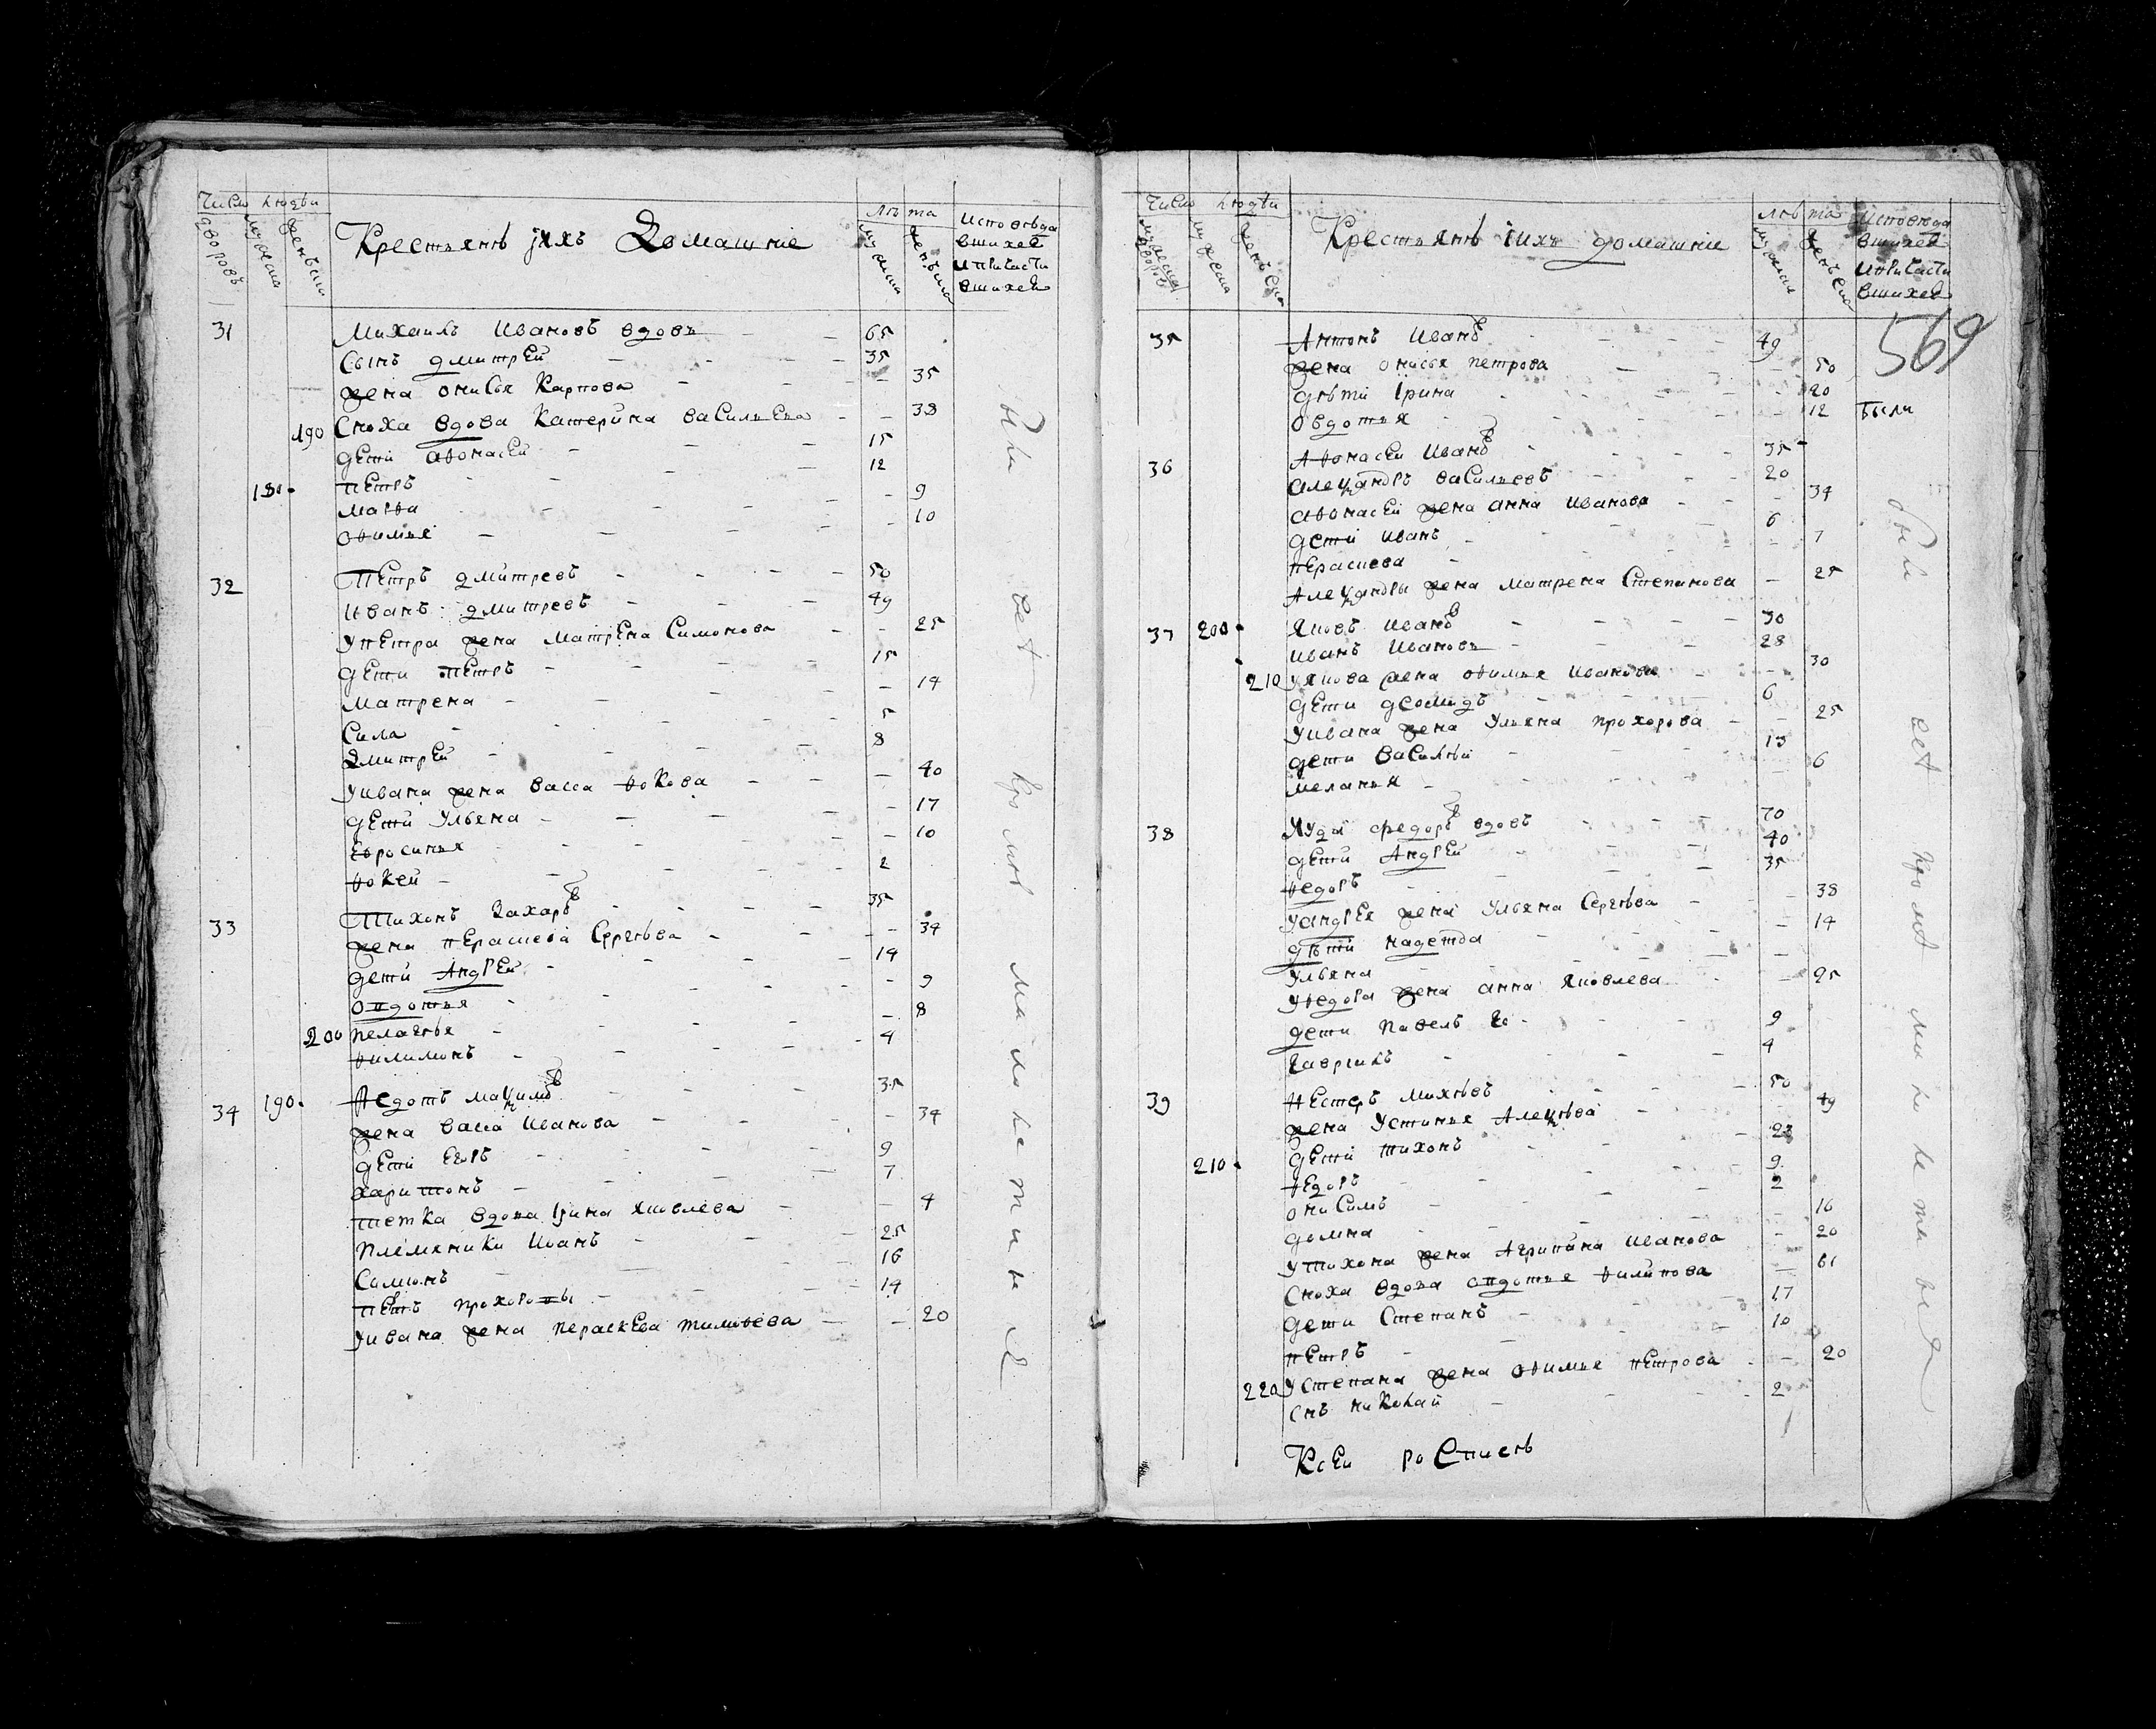 Число людеи
дворовъ
мужеска
женъска
Крестьянѣ ихъ Домашнiе
лѣта
мужеска
женъска
исповѣда
вшихся
и причасти
вшихся
31 Михаилъ Ивановъ вдовъ 65
Сынъ дмитреи 35
жена онисья Карпова 35
190 Сноха вдова Катерина василиева 38
дети афонасеи 15
180 петръ 12
марфа 9
офимья 10
32 Петръ дмитревъ 50
Иванъ дмитревъ 49
У петра жена Матрена Симонова 25
дети петръ 15
Матрена 14
Сила 5
Дмитреи 8
У ивана жена васса фокова 40
дети Ульяна 17
Ефросинья 10
фокеи 2
33 Тихонъ Захаровъ 35
жена перасковя Сергѣва 34
дети Андреи 14
овдотья 9
200 пелагѣя 8
филимонъ 4
34 190 Федотъ максимовъ 35
жена васса Иванова 34
дети Егоръ 9
харитонъ 7
тетка вдова Ирина яковлева 4
племяники Иванъ 25
Симионъ 16
петръ прохоровы 14
У ивана жена пераскева тимофева 20
были всѣ кромѣ малолетних
Число людеи
дворовъ
мужеска
женъска
Крестьянѣ ихъ домашнiи
лѣта
мужеска
женъска
исповѣда
вшихся
и причасти
вшихся
569
35 Антонъ Ивановъ 49
жена онисья петрова 50
дѣти Ирина 20
овдотья 12 Были
36 Афонасеи Ивановъ 35
Александръ васильевъ 20
афонасеи жена анна Иванова 34
дети Иванъ 6
перасковя 7
Александры жена матрена Степанова 25
37 200 Яковъ Ивановъ 30
иванъ Ивановъ 28
210 У якова жена офимья Иванова 30
дети деомидъ 6
У ивана жена Ульяна прохорова 25
дети василѣи 13
меланья 6
38 федоровъ вдовъ 70
дети Андреи 40
федоръ 35
У андрея жена Ульяна Сергѣва 38
дѣти надежда 14
Ульяна
У федора жена анна яковлева 25
дети павелъ 9
гаврилъ 4
39 Нестеръ михѣевъ 50
жена Устинья Алексѣва 49
дети тихонъ 23
210 федоръ 9
онисимъ 2
домна 16
У тихона жена Агрипина Иванова 20
Сноха вдова овдотья филипова 61
дети Степанъ 17
петръ 10
220 У степана жена офимья петрова 20
снъ николаи 2
были всѣ кромѣ малолетных
Ксеи росписѣ